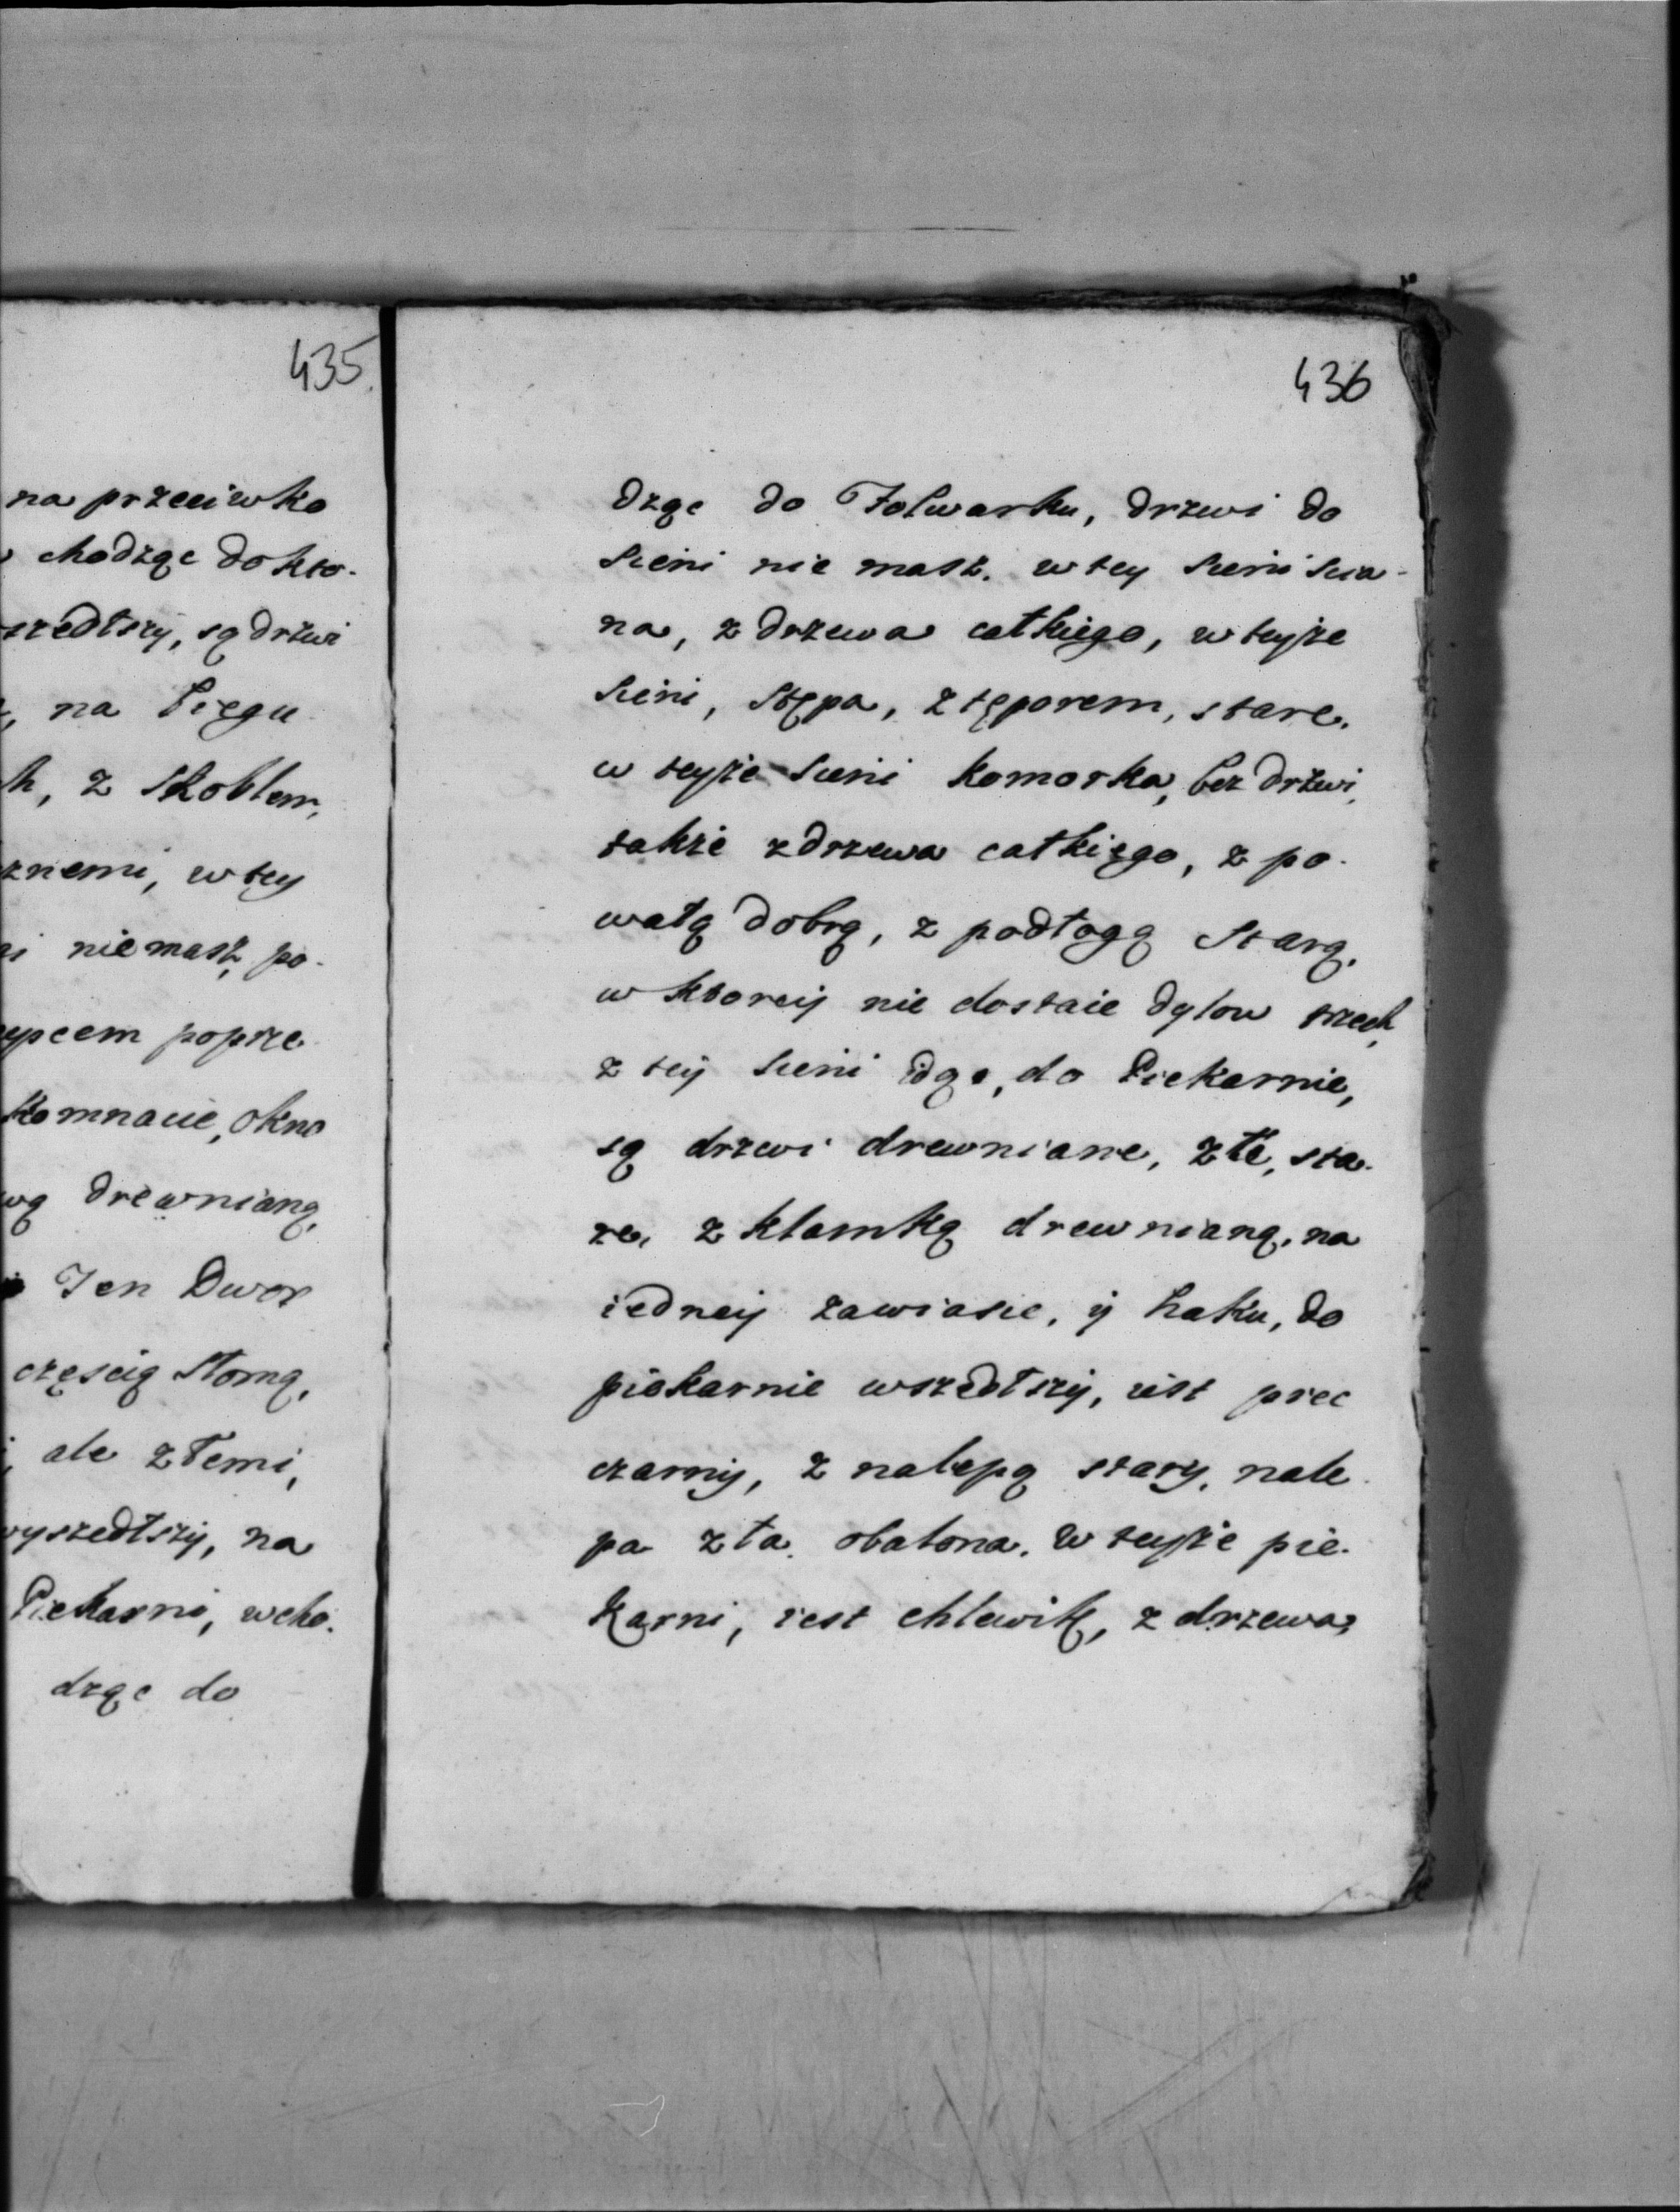 435
na przeciwko
chodząc do kto-
szedłszy, są drzwi
na biegu
k, z Skoblem,
znemi, w tey
i nie masz, po-
ypcem poprze
Komnacie, okno
wą drewnianą,
Ten Dwor
częscią słomą,
ale złemi,
wyszedłszy, na
Piekarni, wcho-
dząc do
436
dząc do Folwarku, drzwi do
Sieni nie masz. w tey Sieni scia-
na, z drzewa całkiego, w teyże
Sieni, Stępa, z tęporem, stare.
w teyże Sieni Komorka, bez drzwi,
także z drzewa całkiego, z po-
wałą dobrą, z podłogą Starą,
w ktorey nie dostaie dylow trzech,
z tey Sieni idąc, do Piekarnie,
są drzwi drewniane, złe, sta-
re, z klamką drewnianą, na
iedney zawiasie, y haku, do
piekarnie wszedłszy, iest piec
czarny, z nalepą stary, nale-
pa zła, obalona. w teyże pie-
karni, iest chlewik, z drzewa